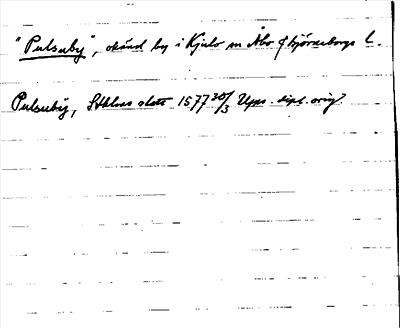 "Pulsuby", okänd by i Kjulo sn Åbo o. Björneborgs l.
Pulsuby, Sthlms slott 1577 30/3 Ups. dipl. orig.